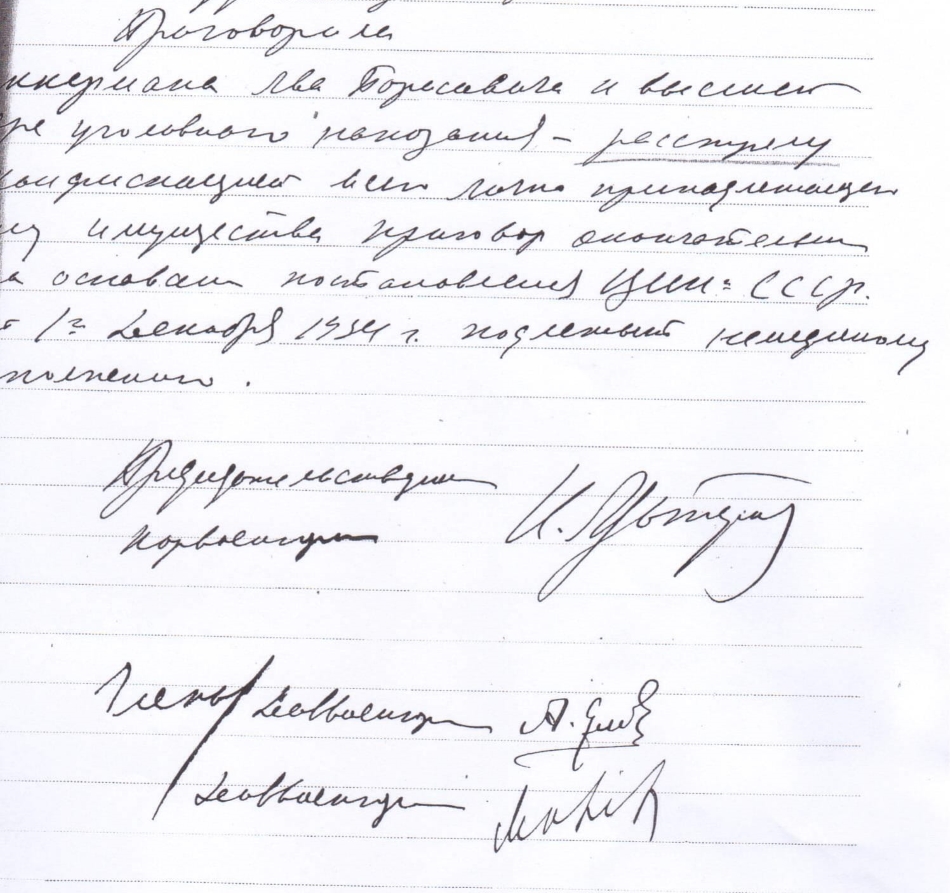 Приговорила
ккермана Льва Борисовича к высшей
ре уголовного наказания – расстрелу
конфискацией всего лично принадлежащего
му имущества приговор окончательный
а основании постановления ЦИК СССР.
т 1го декабря 1934 г. подлежит немедленному
полнению.
Председательствующий
Корвоенюрист И.
Члены Диввоенюрист А.
Диввоенюрист